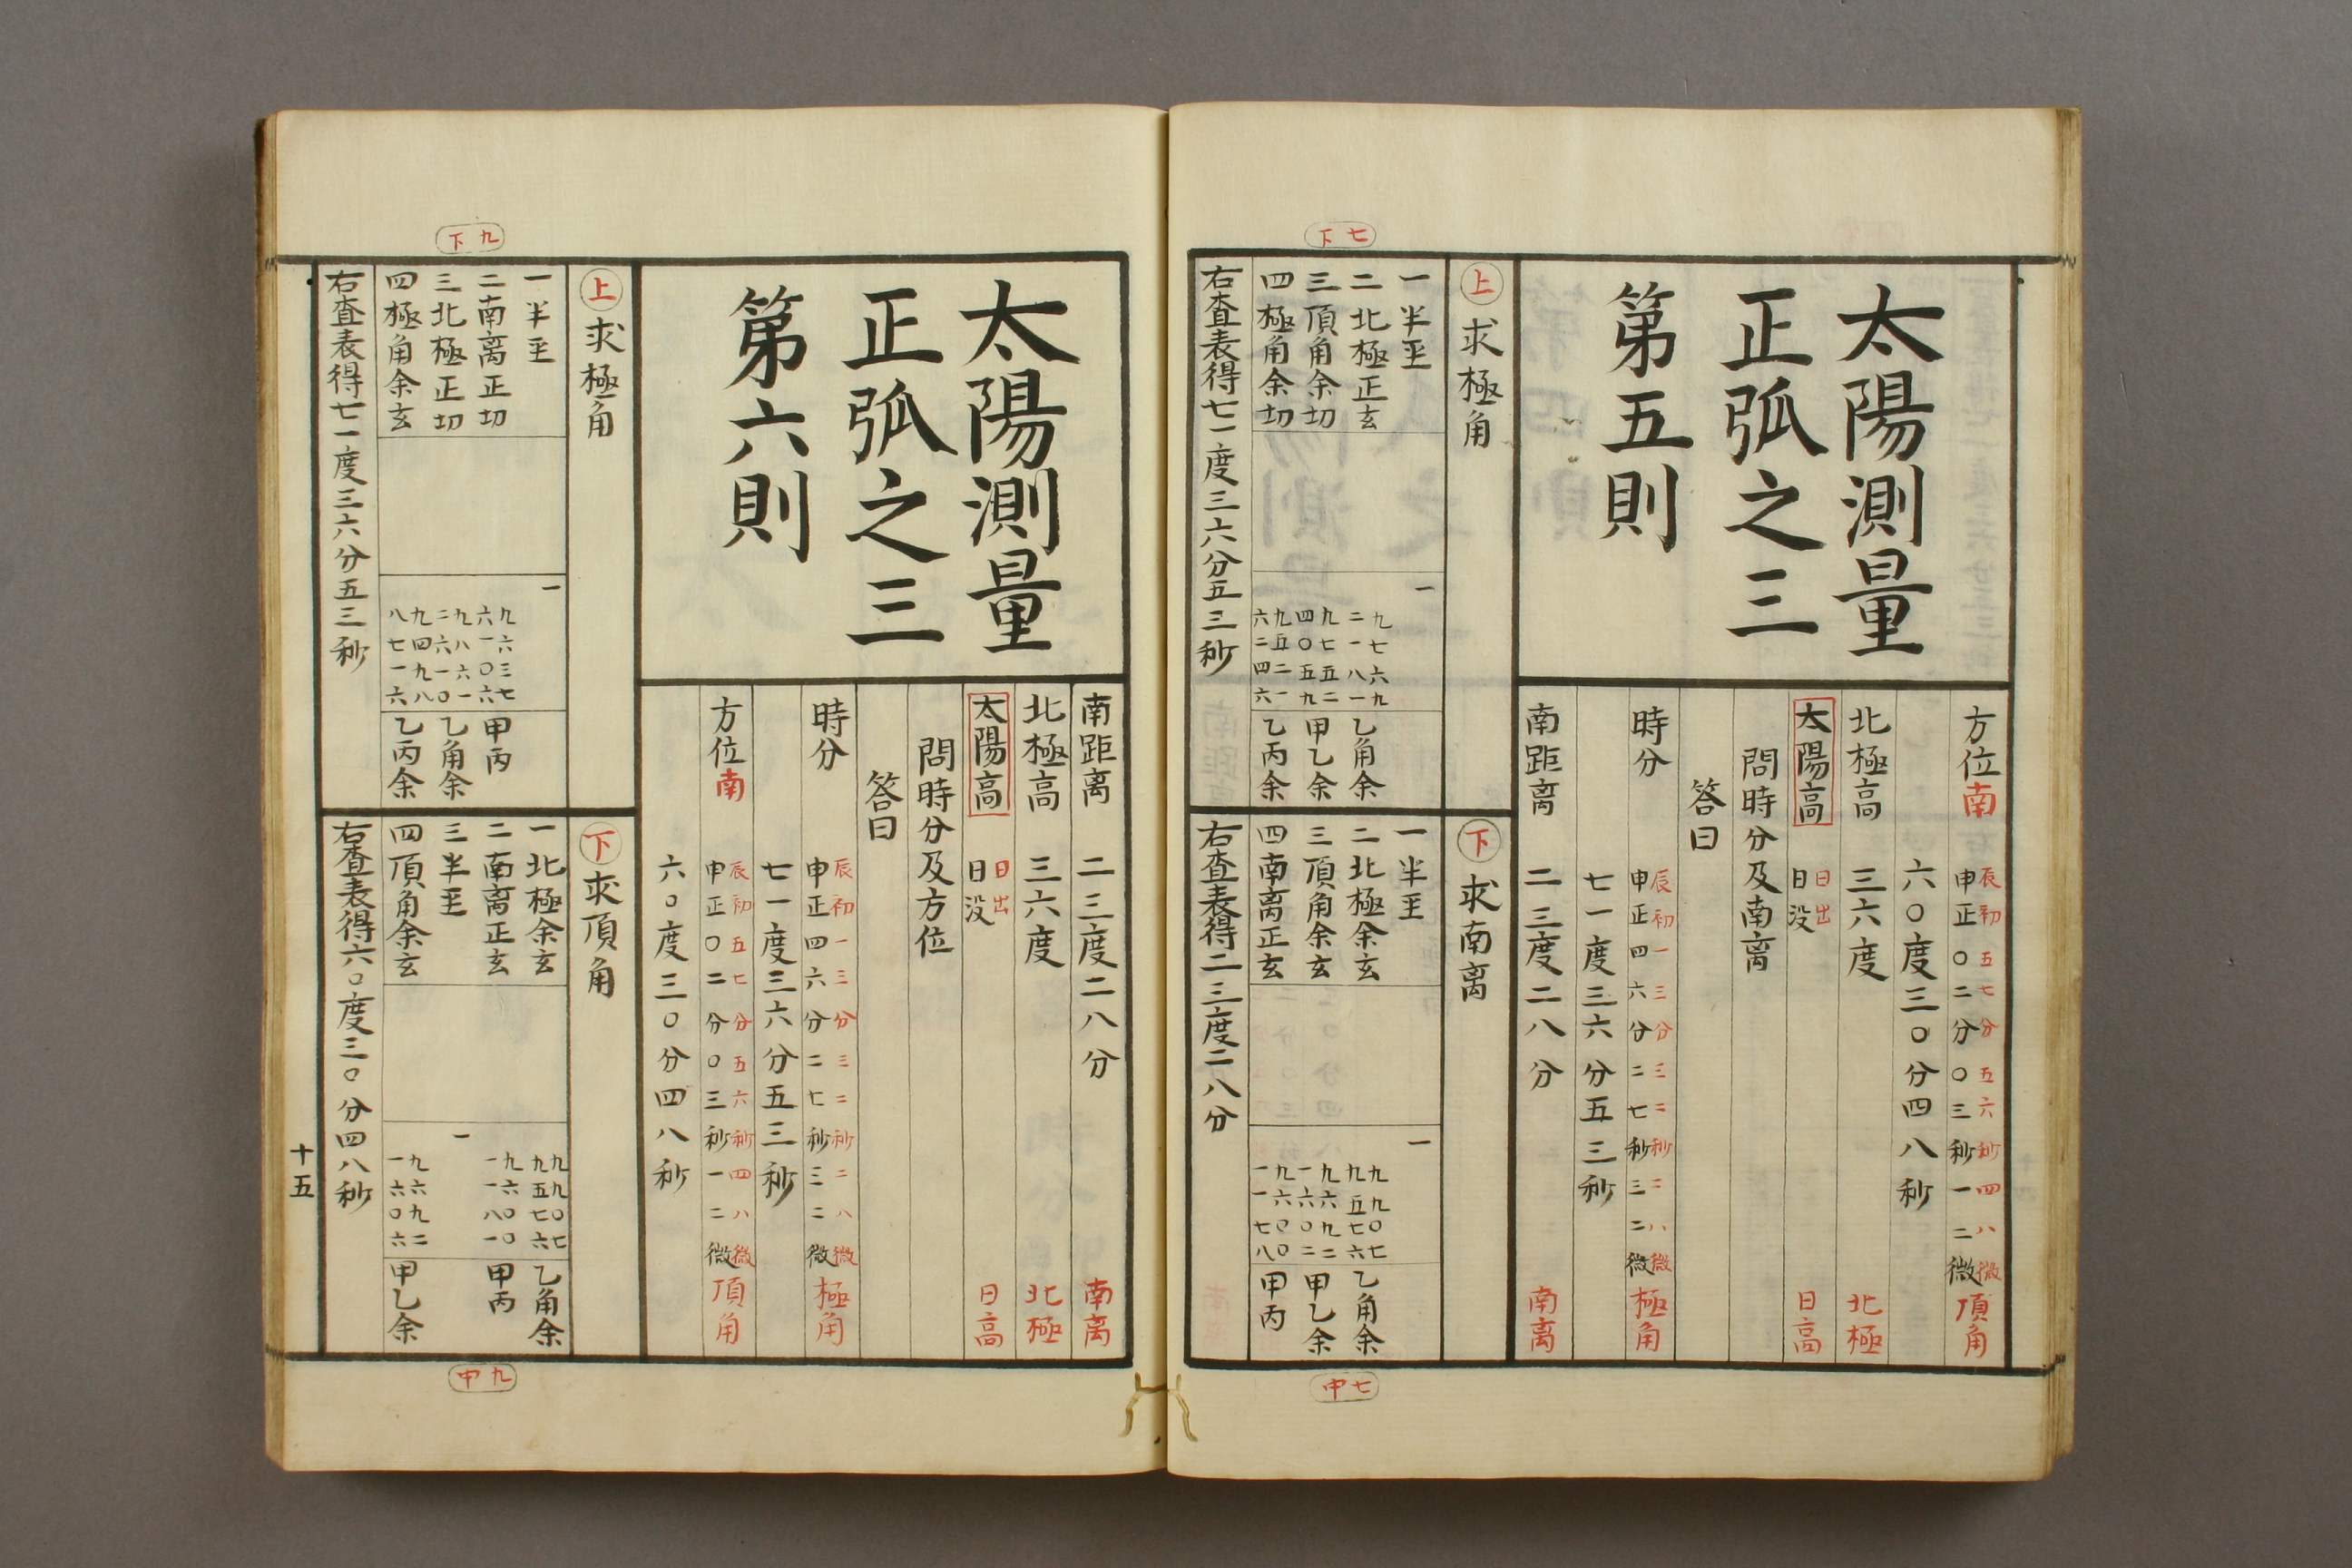 七下
太陽測量
正弧之三
第五則
方位南 辰初五七分五六秒四八微
申正〇二分〇三秒一二微 頂角
六〇度三〇分四八秒
北極高 三六度 北極
太陽高 日出
日没 日高
問時分及南离
答曰
時分 辰初一三分三二秒二八微
申正四六分二七秒三二微 極角
七一度三六分五三秒
南距离 二三度二八分 南离
上求極角
一半至 一
二北極正玄 九七六九二一八一 乙角余
三頂角余切 九七五二四〇五九 甲乙余
四極角余切 九五二一六二四六 乙丙余
右査表得七一度三六分五三秒
下求南离
一半至 一
二北極余玄 九九〇七九五七六 乙角余
三頂角余玄 九六九二一六〇二 甲乙余
四南离正玄 九六〇〇一一七八 甲丙
右査表得二三度二八分
七中
九下
太陽測量
正弧之三
第六則
南距离 二三度二八分 南离
北極高 三六度 北極
太陽高 日出
日没 日高
問時分及方位
答曰
時分 辰初一三分三二秒二八微
申正四六分二七秒三二微 極角
七一度三六分五三秒
方位南 辰初五七分五六秒四八微
申正〇二分〇三秒一二微 頂角
六〇度三〇分四八秒
上求極角
一半至 一
二南离正切 九六三七六一〇六 甲丙
三北極正切 九八六一二六一〇 乙角余
四極角余玄 九四九八八七一六 乙丙余
右査表得七一度三六分五三秒
下求頂角
一北極余玄 九九〇七九五七六 乙角余
二南离正玄 九六〇〇一一八一 甲丙
三半至 一
四頂角余玄 九六九二一六〇六 甲乙余
右査表得六〇度三〇分四八秒
九中
十五